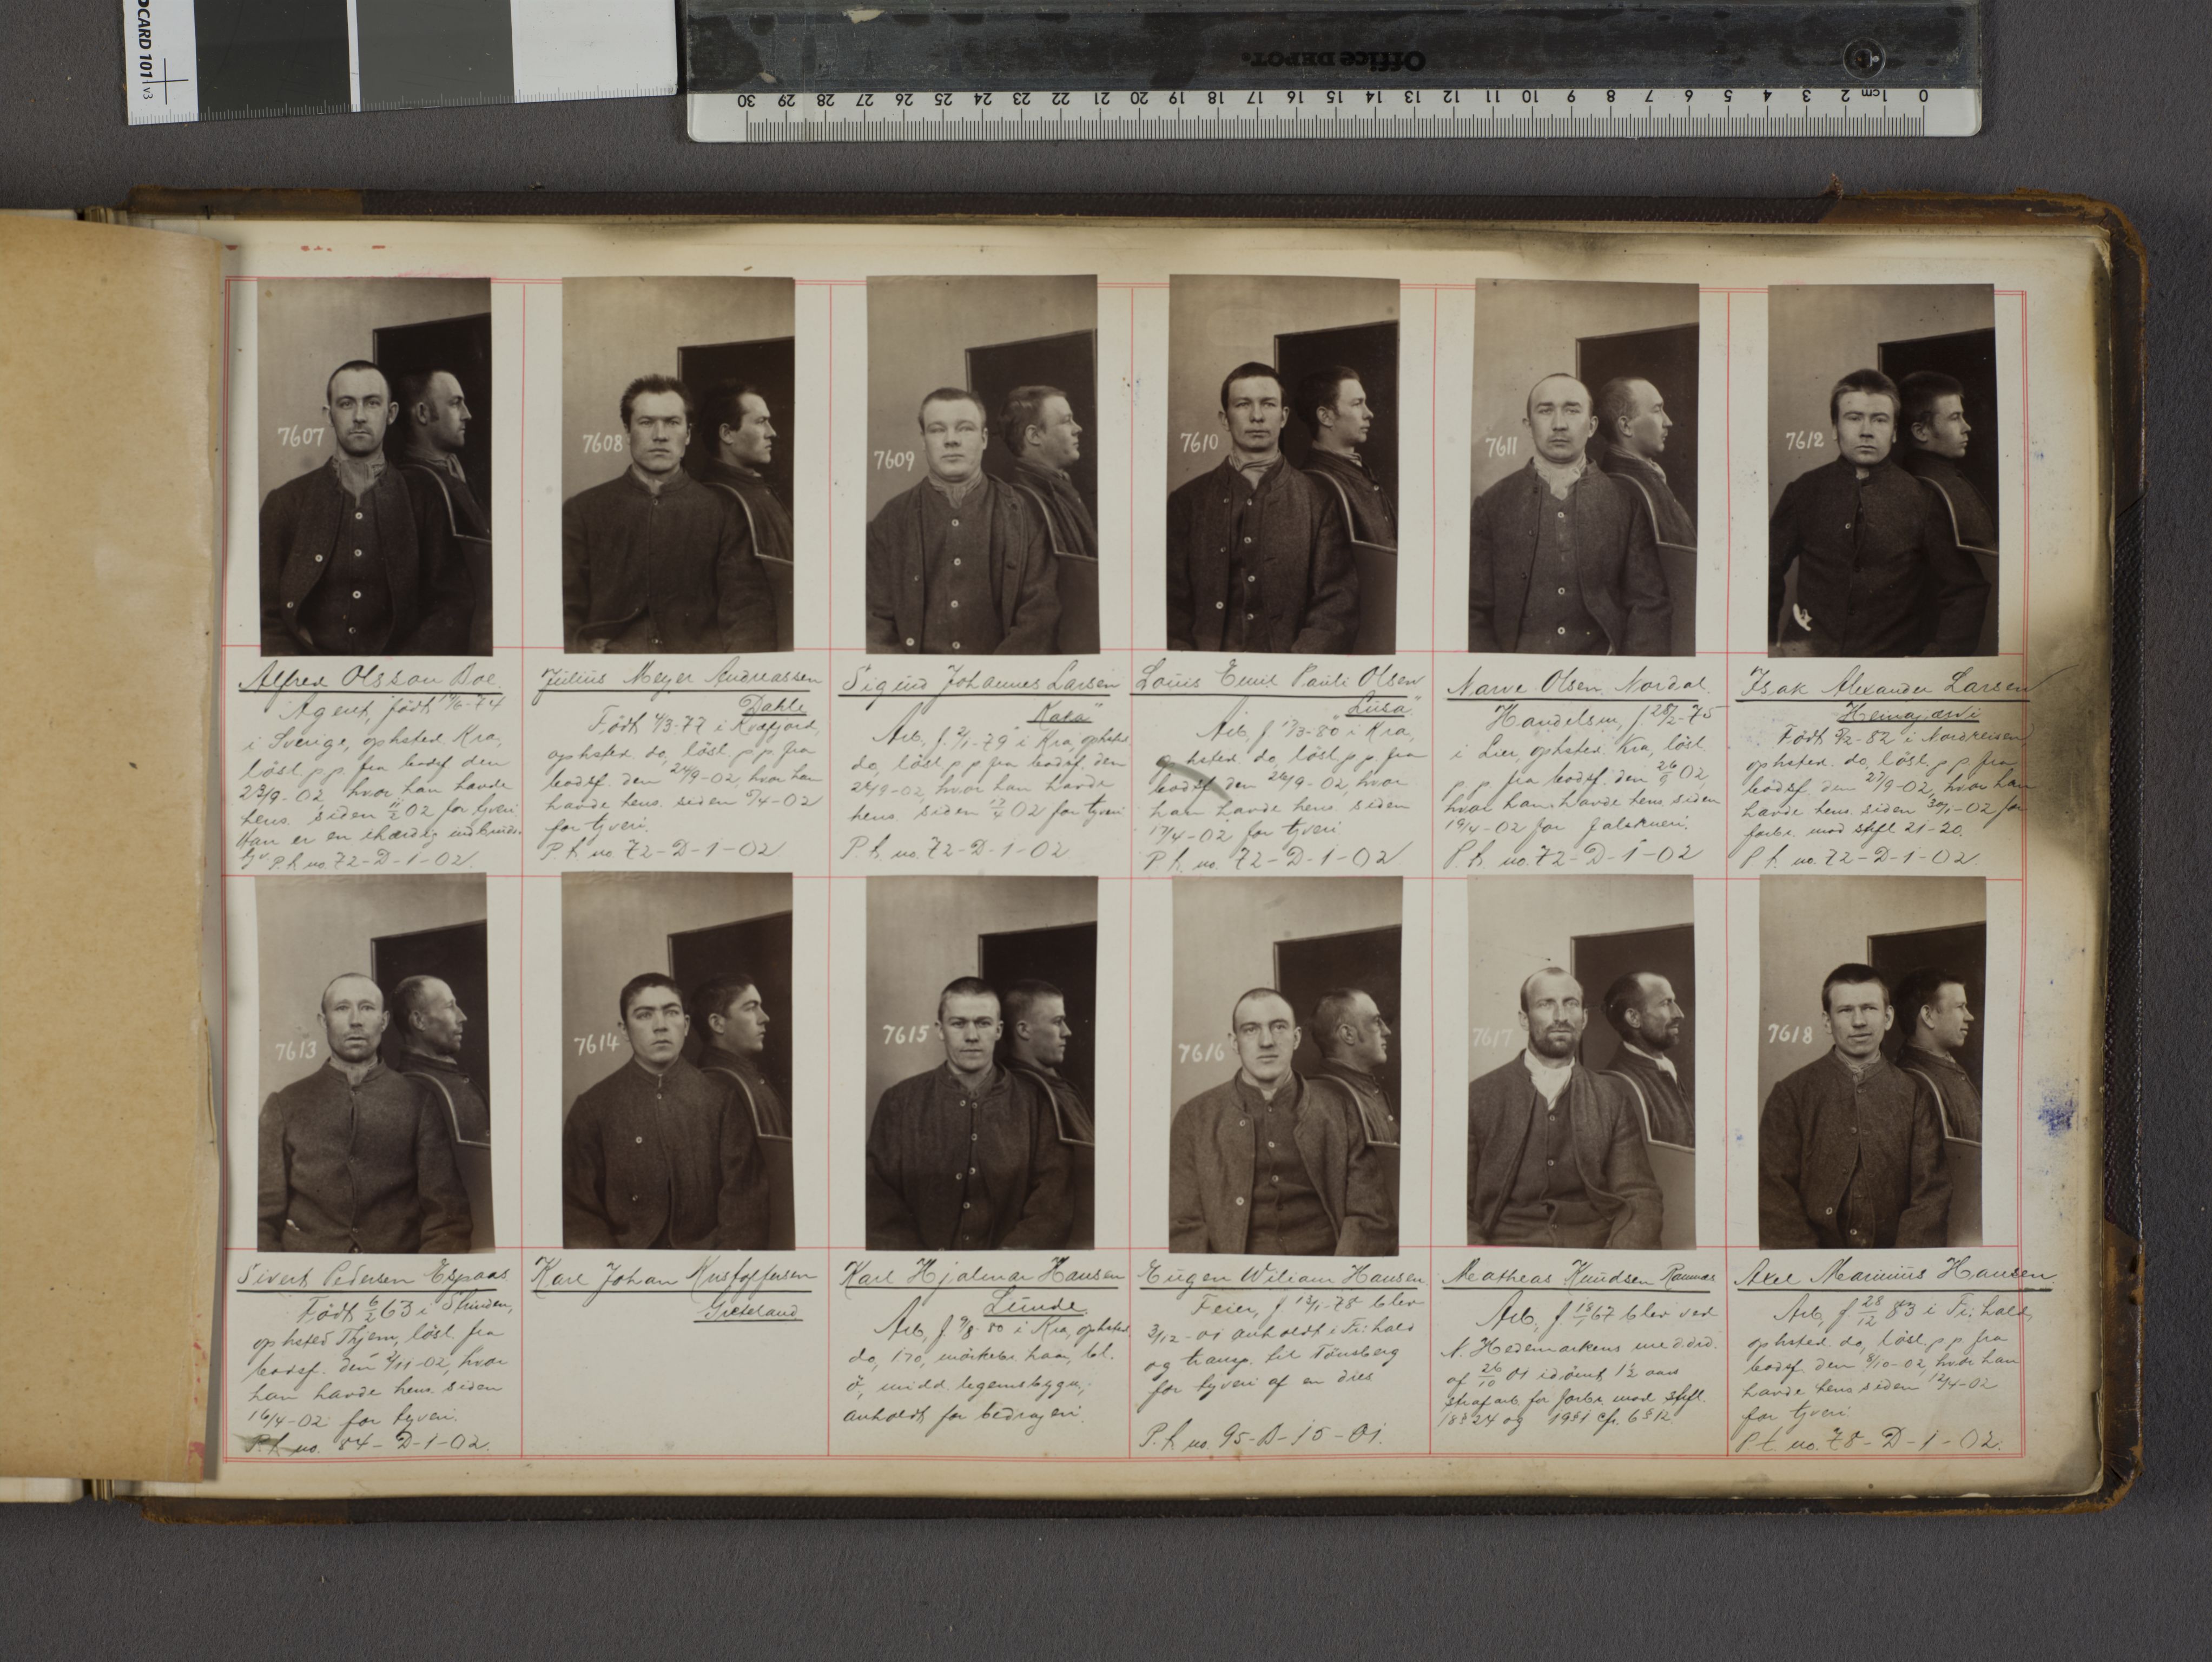 OCARD 101 v3
Office DEPOT.
0 1cm 2 3 4 5 6 7 8 9 10 11 12 13 14 15 16 17 18 19 20 21 22 23 24 25 26 27 28 29 30
7607
Alfred Olsson Boe.
Agent, född 17/6-74
i Sverige, ophsted. Kra,
löst p.p. fra bodsf den
23/9-02, hvor han havde
hens. siden 11/2 02 for tyveri
Han er en ihærdig indbruds-
tyv. P.k. no. 72-D-1-02.
7608
Julius Meyer Andreassen
Dahle
Född 4/3-77 i Kvæfjord,
ophsted. do, löst p.p. fra
bodsf. den 24/9-02, hvor han
havde hens. siden 5/4-02
for tyveri.
P.k. no 72-D-1-02
7609
Sigurd Johannes Larsen
"Kala"
Arb. f. 2/1-79 i Kra, ophsted.
do, löst p p fra bodsf. den
24/9-02, hvor han havde
hens. siden 17/4 02 for tyveri
P.k. no. 72-D-1-02
7610
Louis Emil Pauli Olsen
"Lusa"
Arb, f 17/3-80 i Kra,
ophsted do, löst p p fra
bodsf den 26/9-02, hvor
han havde hens. siden
17/4-02 for tyveri
P.k. no. 72-D-1-02
7611
Narve Olsen Nordal.
Handelsm, f. 28/2-75
i Lier, ophsted. Kra, löst
p p fra bodsf. den 26/9 02,
hvor han havde hens siden
19/4-02 for falskneri.
P.k. no. 72-D-1-02
7612
Isak Alexander Larsen
Född 9/2-82 i Nordreisen,
ophsted. do, löst p p fra
bodsf. den 27/9-02, hvor han
havde hens. siden 30/1-02 for
forbr. mod stfl 21-20.
P k. no. 72-D-1-02.
7613
Sivert Pedersen Espaas
Född 6/2 63 i Stinden,
ophsted Thjem, löst fra
bodsf. den 4/11-02, hvor
han havde hens. siden
16/4-02 for tyveri.
P.k. no. 84-D-1-02.
7614
Karl Johan Kristoffersen
7615
Karl Hjalmar Hansen
Lunde
Arb, f 9/8 80 i Kra, ophsted.
do, 170, mörkebr. haar, bl.
ö, midd. legemsbygn,
anholdt for bedrageri.
7616
Eugen Wiliam Hansen
Feier, f 13/1-78 blev
3/12-01 anholdt i Fr:hald
og transp. til Tönsberg
for tyveri af en dies
P.k. no 95-B-15-01.
7617
Matheas Knudsen Ramnæs
Arb, f 18/1 67 blev ved
N. Hedemarkens meddrd.
af 26/10 01 idömt 1½ aars
strafarb. for forbr. mod stfl.
18 § 24 og 19 § 1 cfr. 6 § 12
7618
Axel Marinius Hansen
Arb, f 28/12 83 i Fr:hald,
ophsted. do, löst p p fra
bodsf den 8/10-02, hvor han
havde hens siden 12/4-02
for tyveri
P k. no. 78-D-1-02.